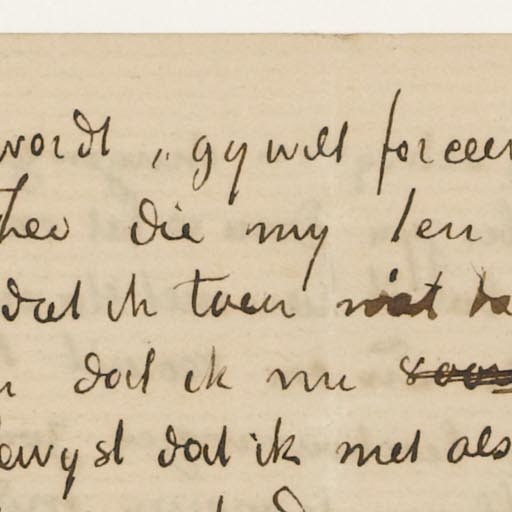 wordt „gy wilt forceer
Theo die my ten
dat ik toen niet
dat ik nu
bewyst dat ik met als